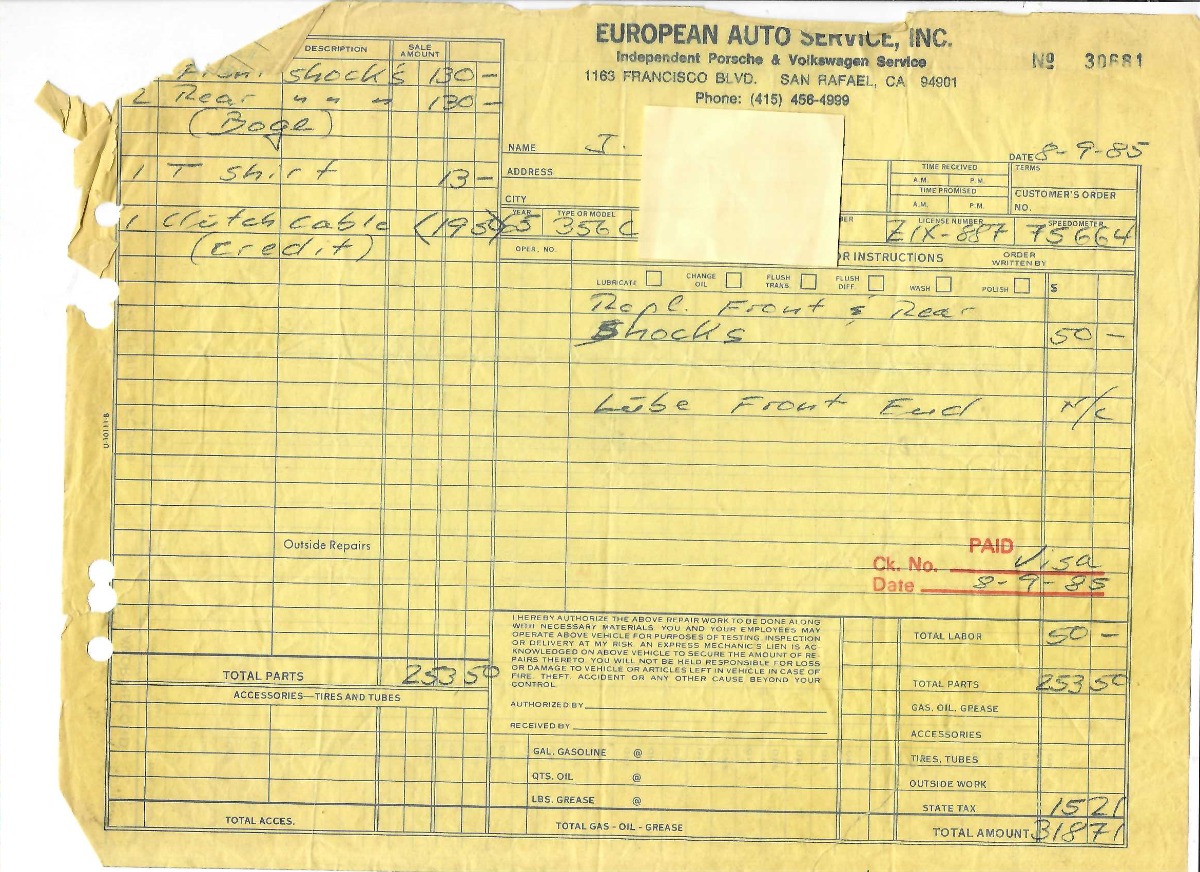 EUROPEAN AUTO SERVICE, INC.
Independent Porsche & Volkswagen Service
1163 FRANCISCO BLVD. SAN RAFAEL, CA 94901
Phone: (415) 456-4999
Nº 30681
DESCRIPTION SALE AMOUNT
Front shock's 130-
2 Rear " " " 130-
(Boge)
1 T shirt 13-
1 Clutch cable (1950)
(credit)
NAME J.
DATE 8-9-85
ADDRESS
CITY
TIME RECEIVED
A.M. P.M.
TIME PROMISED
A.M. P.M.
TERMS
CUSTOMER'S ORDER NO.
YEAR 65 TYPE OR MODEL 356C
LICENSE NUMBER ZIX-887
SPEEDOMETER 75664
OPER. NO.
OR INSTRUCTIONS
ORDER WRITTEN BY
LUBRICATE CHANGE OIL FLUSH TRANS. FLUSH DIFF. WASH POLISH $
Repl. Front & Rear
Shocks 50-
Lube Front End N/C
U-10111-B
Outside Repairs
PAID
Ck. No. Visa
Date 8-9-85
TOTAL PARTS 253 50
ACCESSORIES—TIRES AND TUBES
TOTAL ACCES.
I HEREBY AUTHORIZE THE ABOVE REPAIR WORK TO BE DONE ALONG
WITH NECESSARY MATERIALS. YOU AND YOUR EMPLOYEES MAY
OPERATE ABOVE VEHICLE FOR PURPOSES OF TESTING, INSPECTION
OR DELIVERY AT MY RISK. AN EXPRESS MECHANIC'S LIEN IS AC-
KNOWLEDGED ON ABOVE VEHICLE TO SECURE THE AMOUNT OF RE-
PAIRS THERETO. YOU WILL NOT BE HELD RESPONSIBLE FOR LOSS
OR DAMAGE TO VEHICLE OR ARTICLES LEFT IN VEHICLE IN CASE OF
FIRE, THEFT, ACCIDENT OR ANY OTHER CAUSE BEYOND YOUR
CONTROL.
AUTHORIZED BY
RECEIVED BY
GAL. GASOLINE @
QTS. OIL @
LBS. GREASE @
TOTAL GAS - OIL - GREASE
TOTAL LABOR 50-
TOTAL PARTS 253 50
GAS, OIL, GREASE
ACCESSORIES
TIRES, TUBES
OUTSIDE WORK
STATE TAX 15 21
TOTAL AMOUNT 318 71